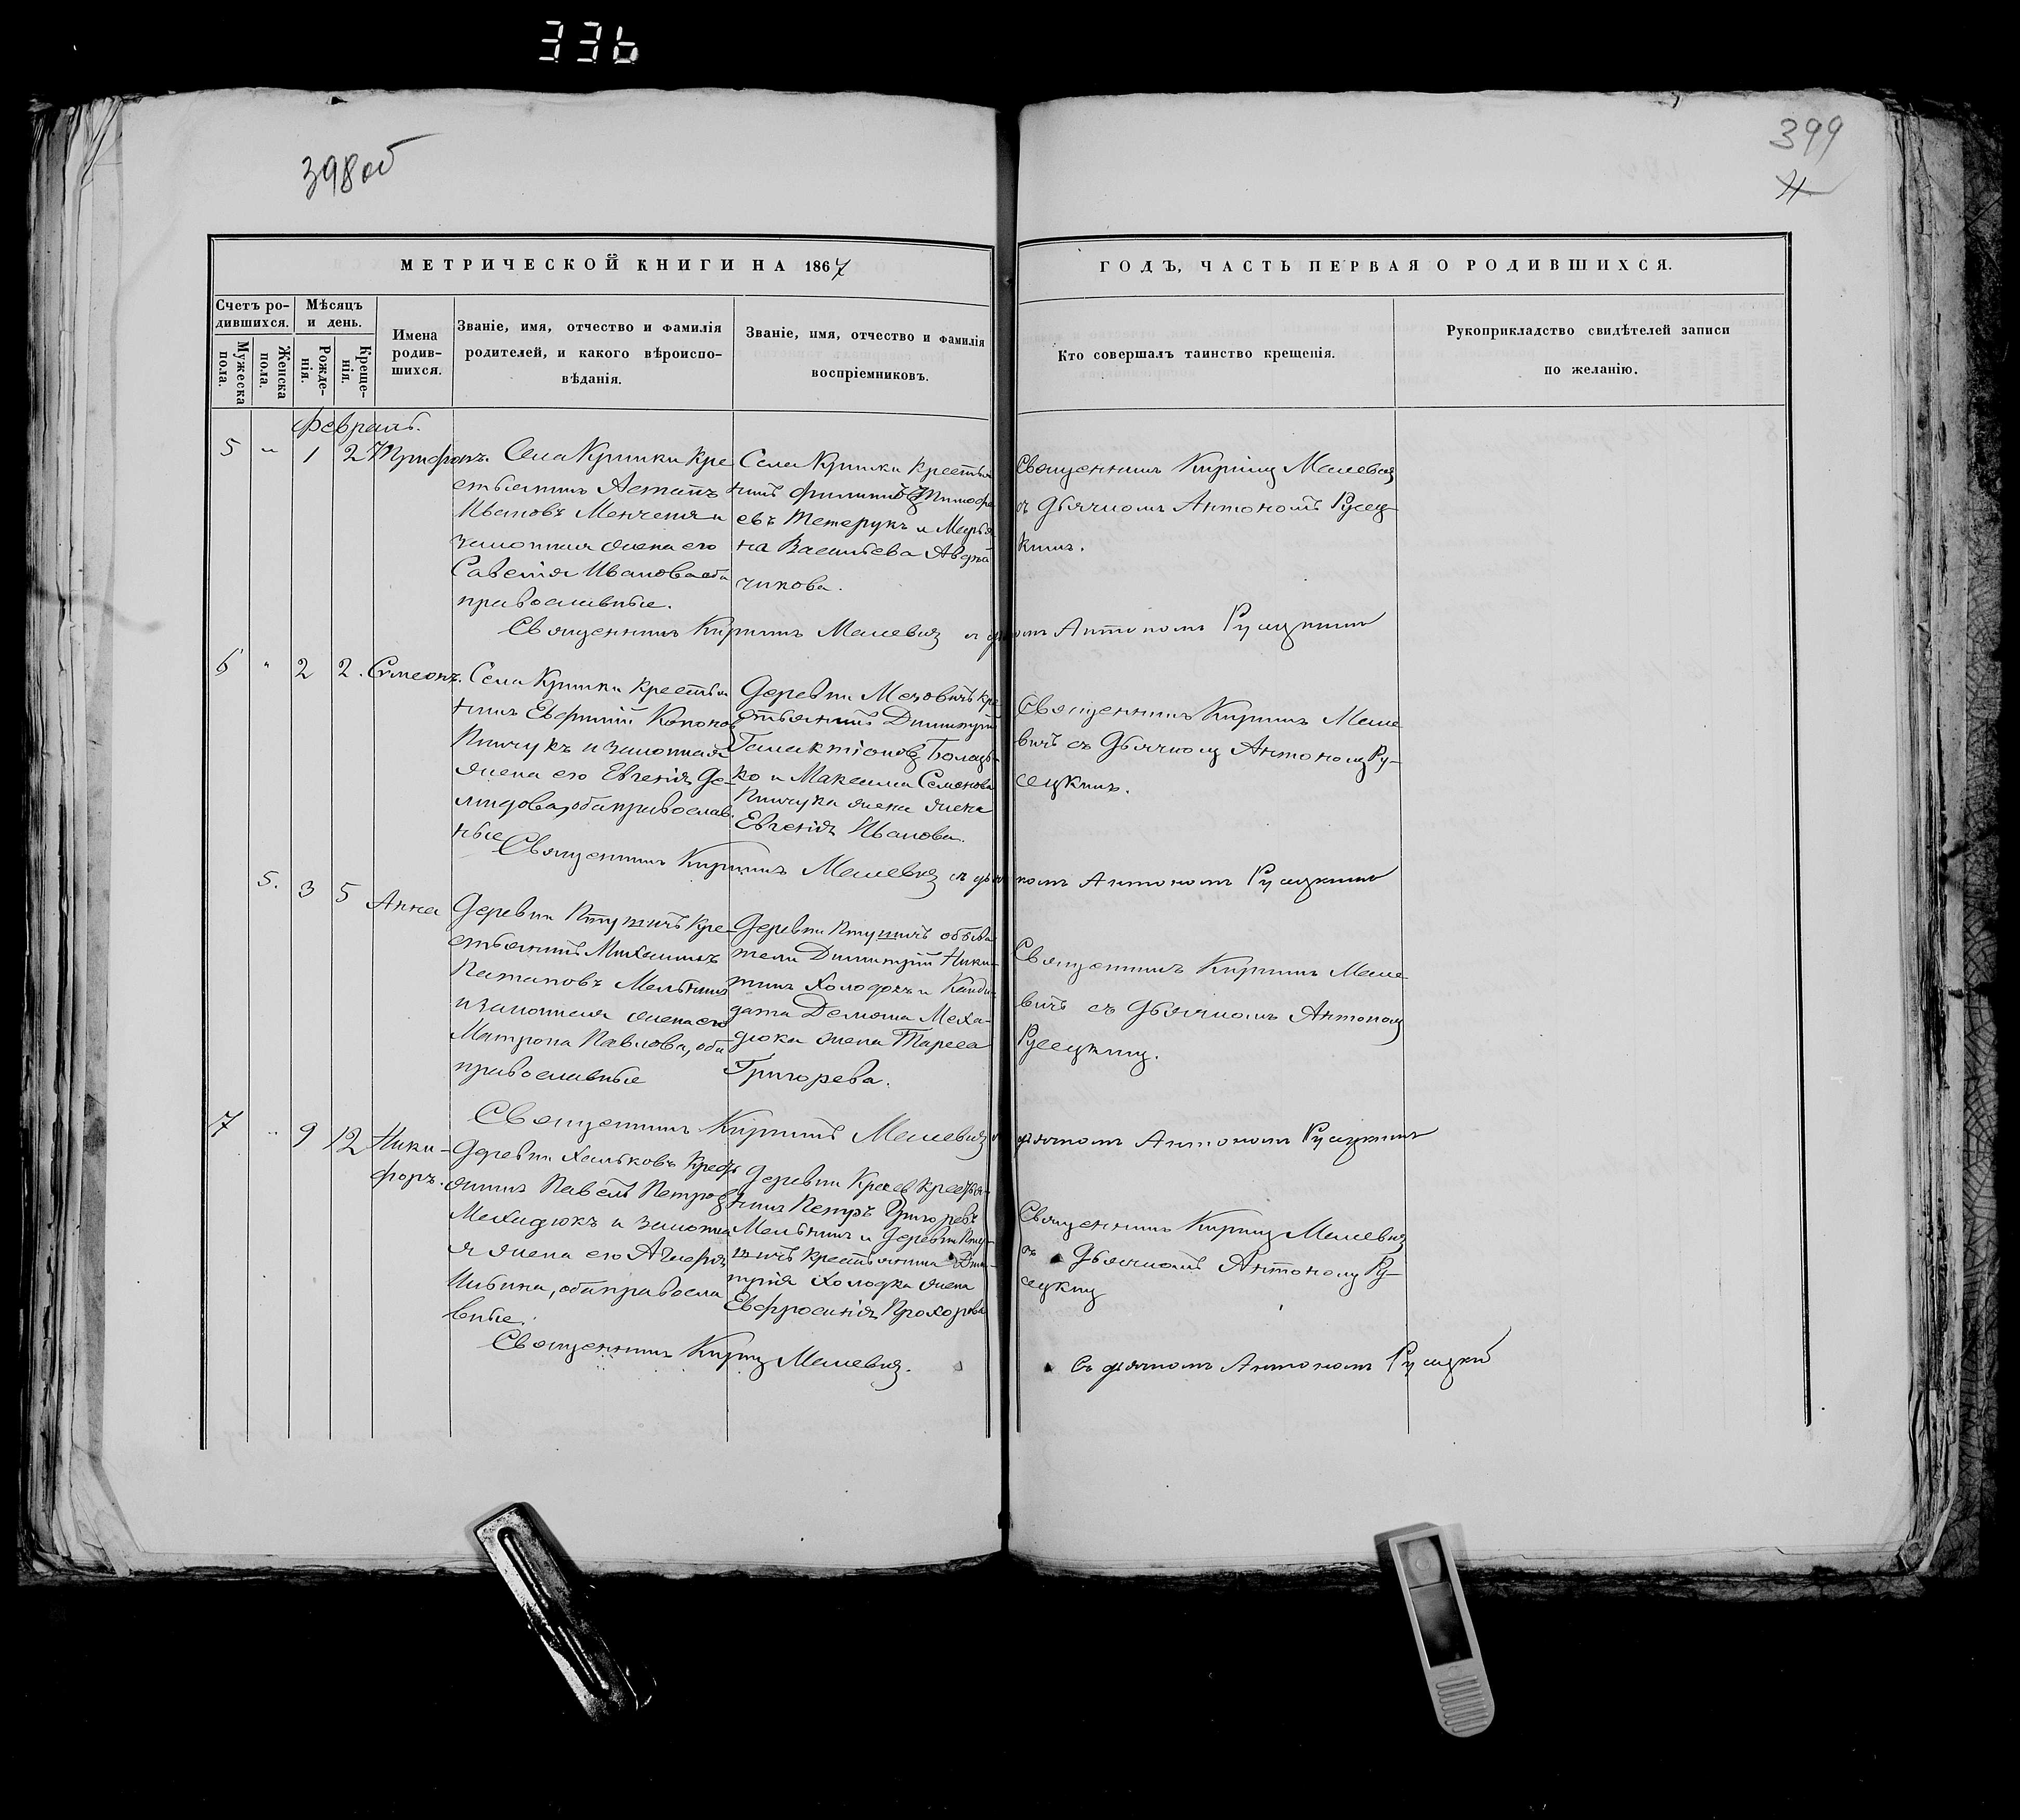 336
398 об
399
МЕТРИЧЕСКОЙ КНИГИ НА 1867
ГОДЪ, ЧАСТЬ ПЕРВАЯ О РОДИВШИХСЯ.
Счетъ ро-
дившихся.
Мужеска
пола.
Женска
пола.
Мѣсяцъ
и день.
Рожде-
нія.
Креще-
нія.
Имена
родив-
шихся.
Званіе, имя, отчество и фамилія
родителей, и какого вѣроиспо-
вѣданія.
Званіе, имя, отчество и фамилія
воспріемниковъ.
Кто совершалъ таинство крещенія.
Рукоприкладство свидѣтелей записи
по желанію.
Февраль.
5 " 1 2 Трифонъ.
Села Кримки Кре
стьянинъ
Ивановъ
законная жена его
Иванова оба
православные.
Села Кримки крестья
нинъ Филиппъ Тимофе
евъ Тетерукъ и Марья
на Васильева
чикова.
Священникъ Кириллъ Малевич
съ Дьячкомъ Антономъ Русец-
кимъ.
Священникъ Кириллъ Малевич съ
Антономъ Русецкимъ
6 " 2 2. Симеонъ.
Села Кримки крестья
нинъ Евфимій Кононов
Пинчукъ и законная
жена его Евгенія Де-
мидова, оба православ
ные
Деревни кре
стьянинъ Димитрій
Галактіонов
ко и Максима Семенова
Пинчука жена жена
Евгенія Иванова.
Священникъ Кириллъ Мале
вичъ съ Дьячкомъ Антономъ Ру-
сецкимъ.
Священникъ Кириллъ Малевич съ дьяч
комъ Антономъ Русецкимъ
5. 3 5 Анна
Деревни Птушичъ кре-
стьянинъ Михаилъ
Мельник
и законная жена его
Матрона Павлова, оба
православные
Деревни Птушичъ обыва
тели Димитрій Ники-
тинъ Холодокъ и Канди
дата Демяна Меха-
дюка жена
Григорева.
Священникъ Кириллъ Мале
вичъ съ Дьячкомъ Антоном
Русецким.
Священникъ Кириллъ Малевич с
дьячкомъ Антономъ Русецкимъ
7 " 9 12 Ники-
форъ.
Деревни кресть
янинъ Павелъ Петров
Мехадюкъ и законна
я жена его Агафія
оба правосла
вные.
Деревни крестья-
нинъ Петръ Григоревъ
Мельникъ и Деревни Пту-
шичъ крестьянина Дми-
трія Холодка жена
Евфросинія Прохорова
Священникъ Кирилл Малевич
съ Дьячкомъ Антоном Ру-
сецким
Священникъ Кирилл Малевич.
съ дьячкомъ Антономъ Русецкій